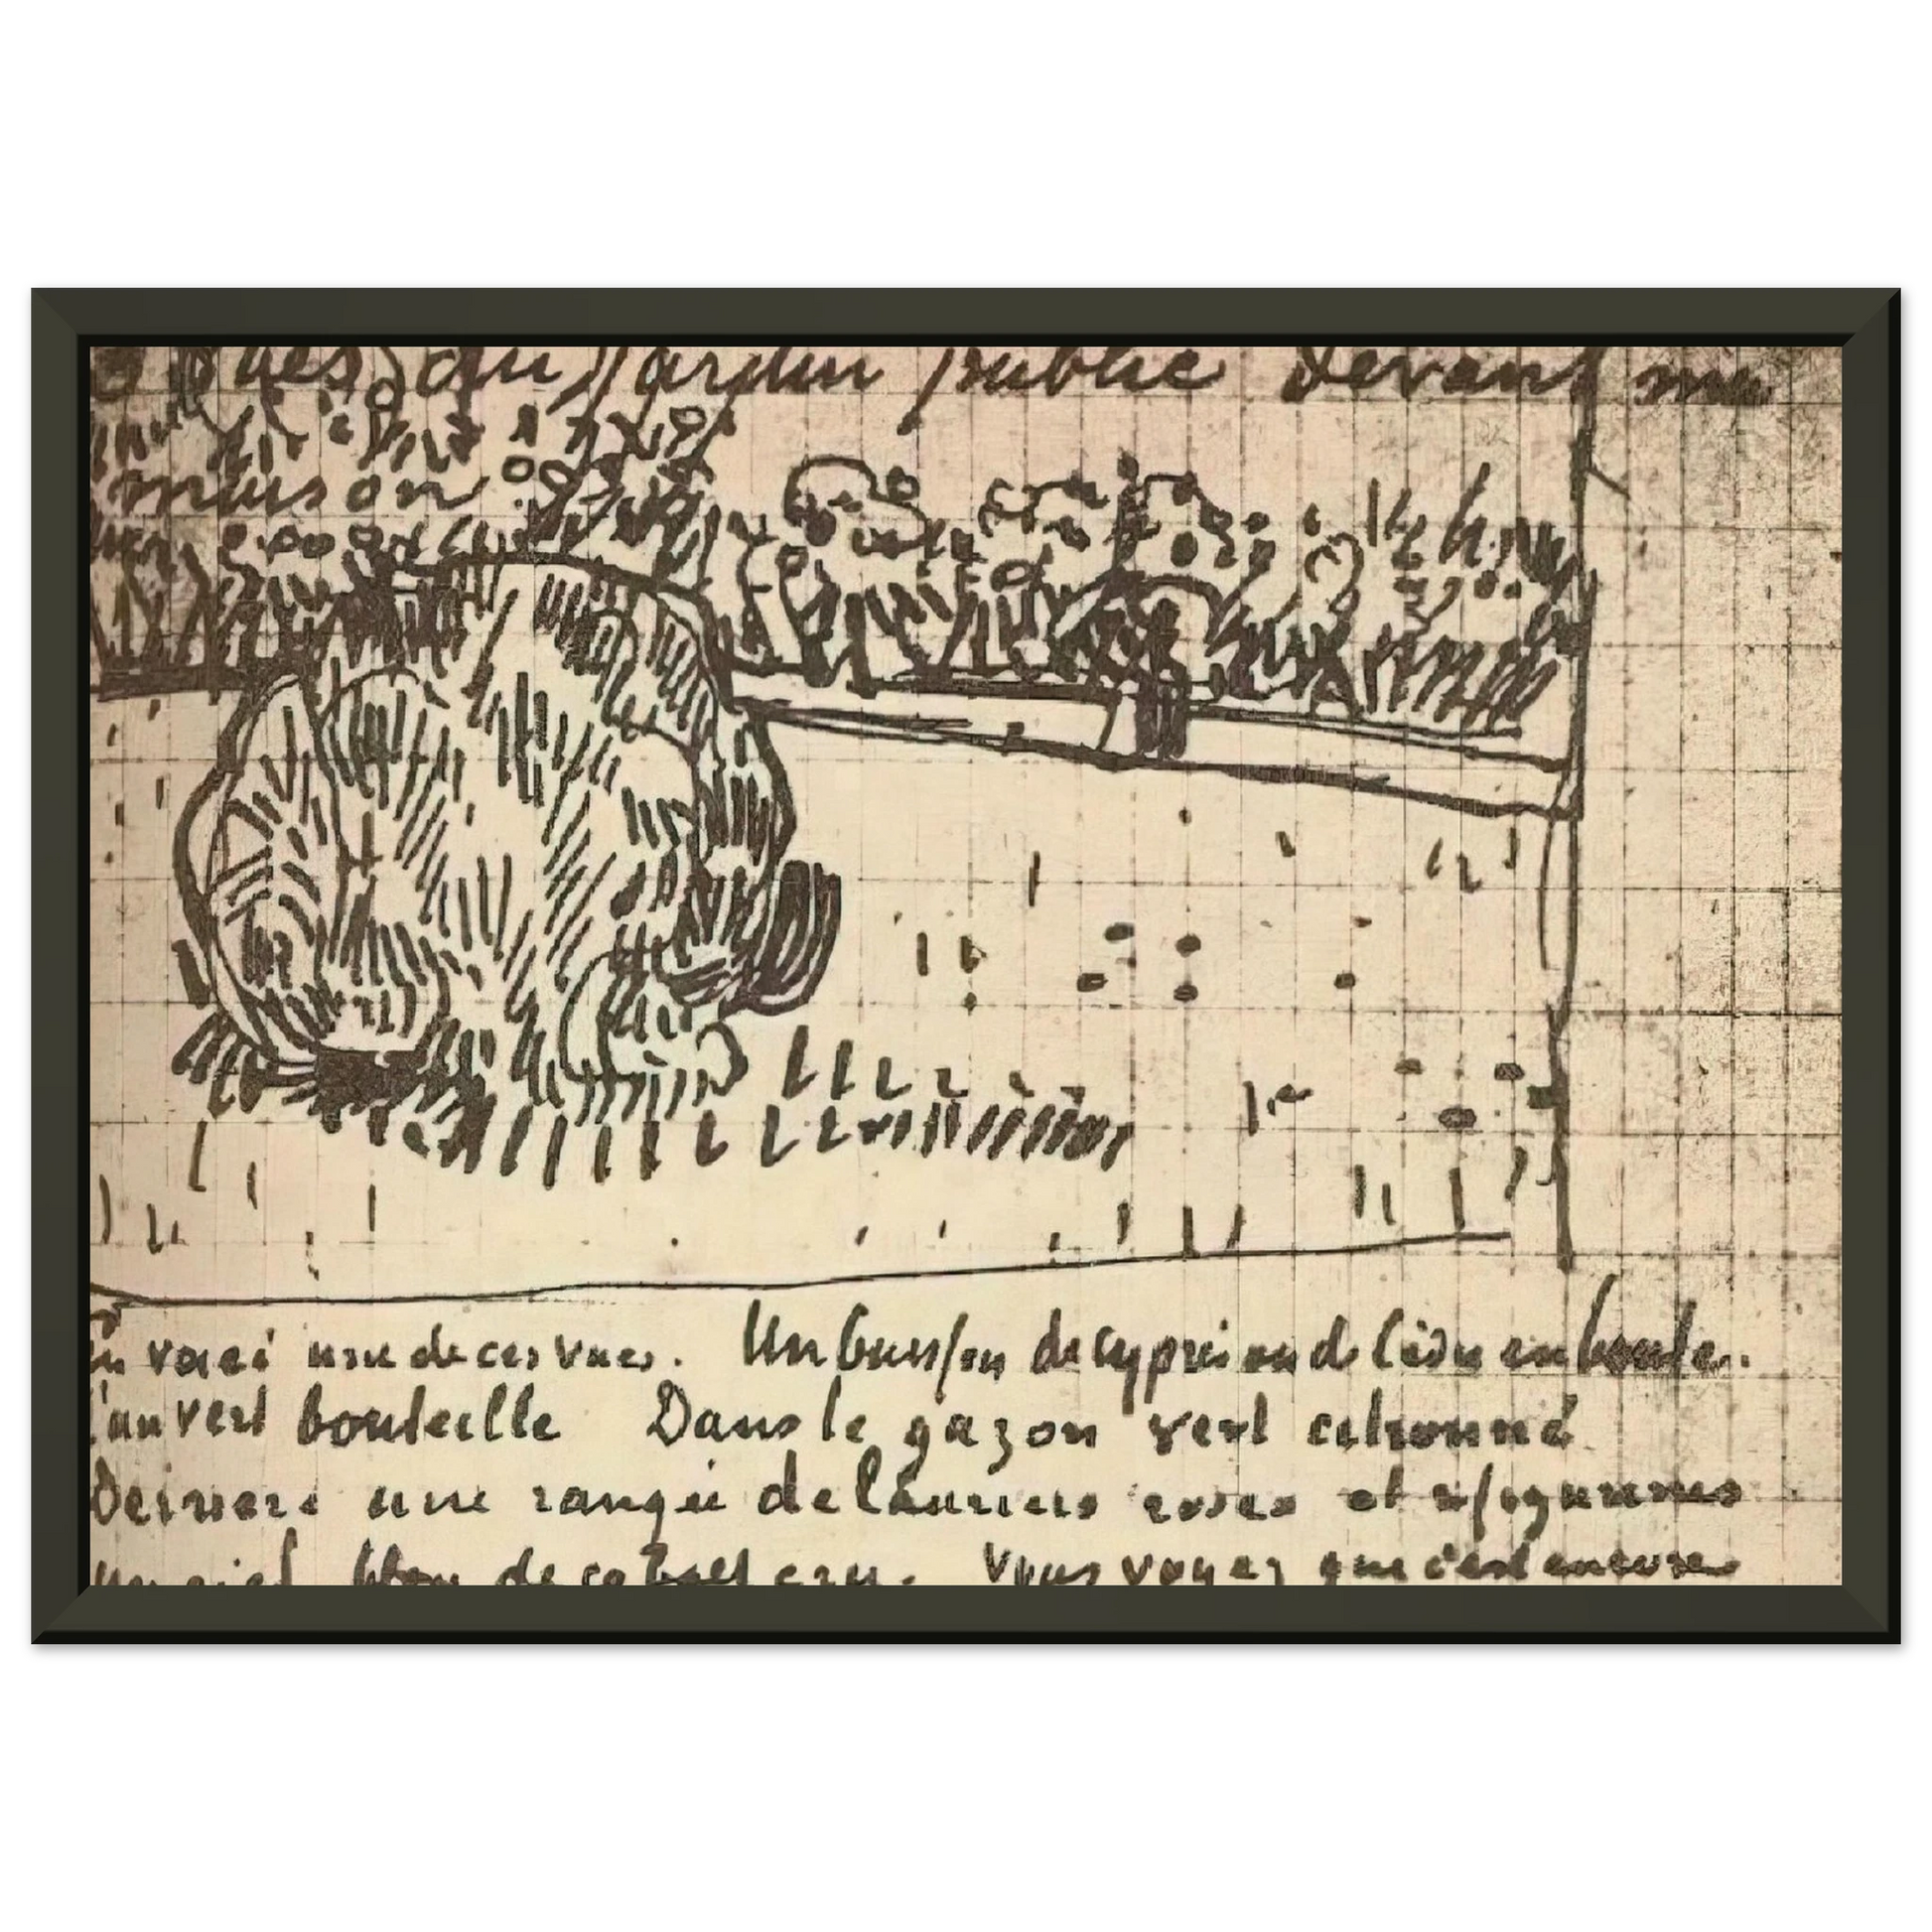 vues du Jardin public devant ma
maison
en voici une de ces vues. Un buisson de cyprès ou de cèdre en boule.
d'un vert bouteille Dans le gazon vert citronné
Derriere une rangée de lauriers roses et
un ciel bleu de cobalt cru. Vous voyez que c'est encore